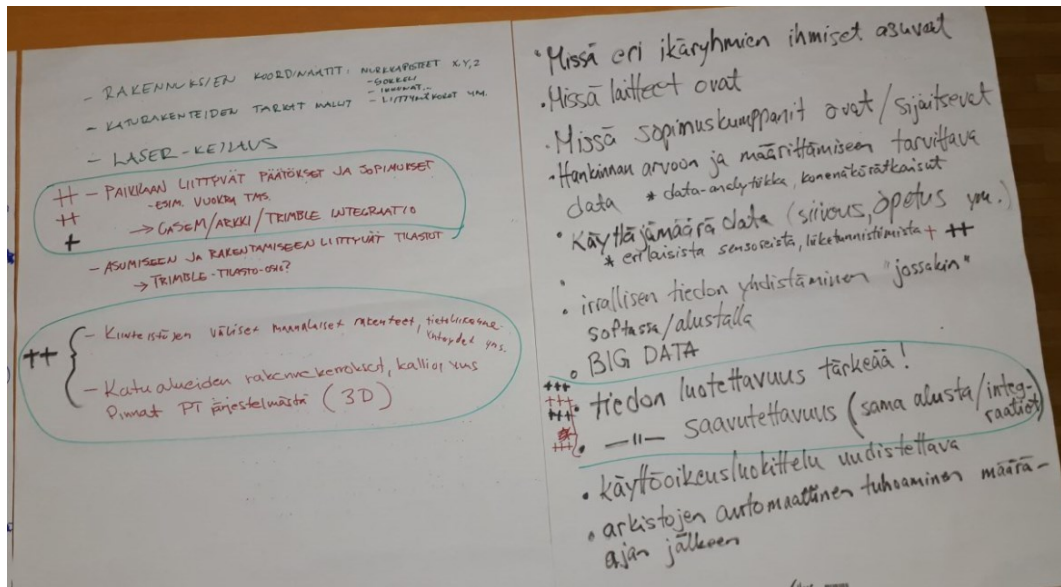 - RAKENNUKSIEN KOORDINAATIT: NURKKAPISTEET X,Y,Z
- SOKKELI
- IKKUNAT...
- KATURAKENTEIDEN TARKAT MALLIT - LIITTYMÄKOROT YM.
- LASER-KEILAUS
++ - PAIKKAAN LIITTYVÄT PÄÄTÖKSET JA SOPIMUKSET
++ - ESIM. VUOKRA TMS.
+ → CASEM/ARKKI/TRIMBLE INTEGRAATIO
- ASUMISEEN JA RAKENTAMISEEN LIITTYVÄT TILASTOT
→ TRIMBLE-TILASTO-OSIO?
++ - Kiinteistöjen väliset maanalaiset rakenteet, tietoliikenne-
yhteydet yms.
- Katualueiden rakennekerrokset, kallio, yms
Pinnat PT järjestelmästä (3D)
• Missä eri ikäryhmien ihmiset asuvat
• Missä laitteet ovat
• Missä sopimuskumppanit ovat/sijaitsevat
• Hankinnan arvoon ja määrittämiseen tarvittava
data * data-analytiikka, konenäköratkaisut
• Käyttäjämäärä data (siivous, opetus ym.)
* erilaisista sensoreista, liiketunnistimista + ++
• irrallisen tiedon yhdistäminen "jossakin"
softassa/alustalla
• BIG DATA
+++ • tiedon luotettavuus tärkeää!
• —"— saavutettavuus (sama alusta/integ-
raatiot)
• käyttöoikeusluokittelu uudistettava
• arkistojen automaattinen tuhoaminen määrä-
ajan jälkeen